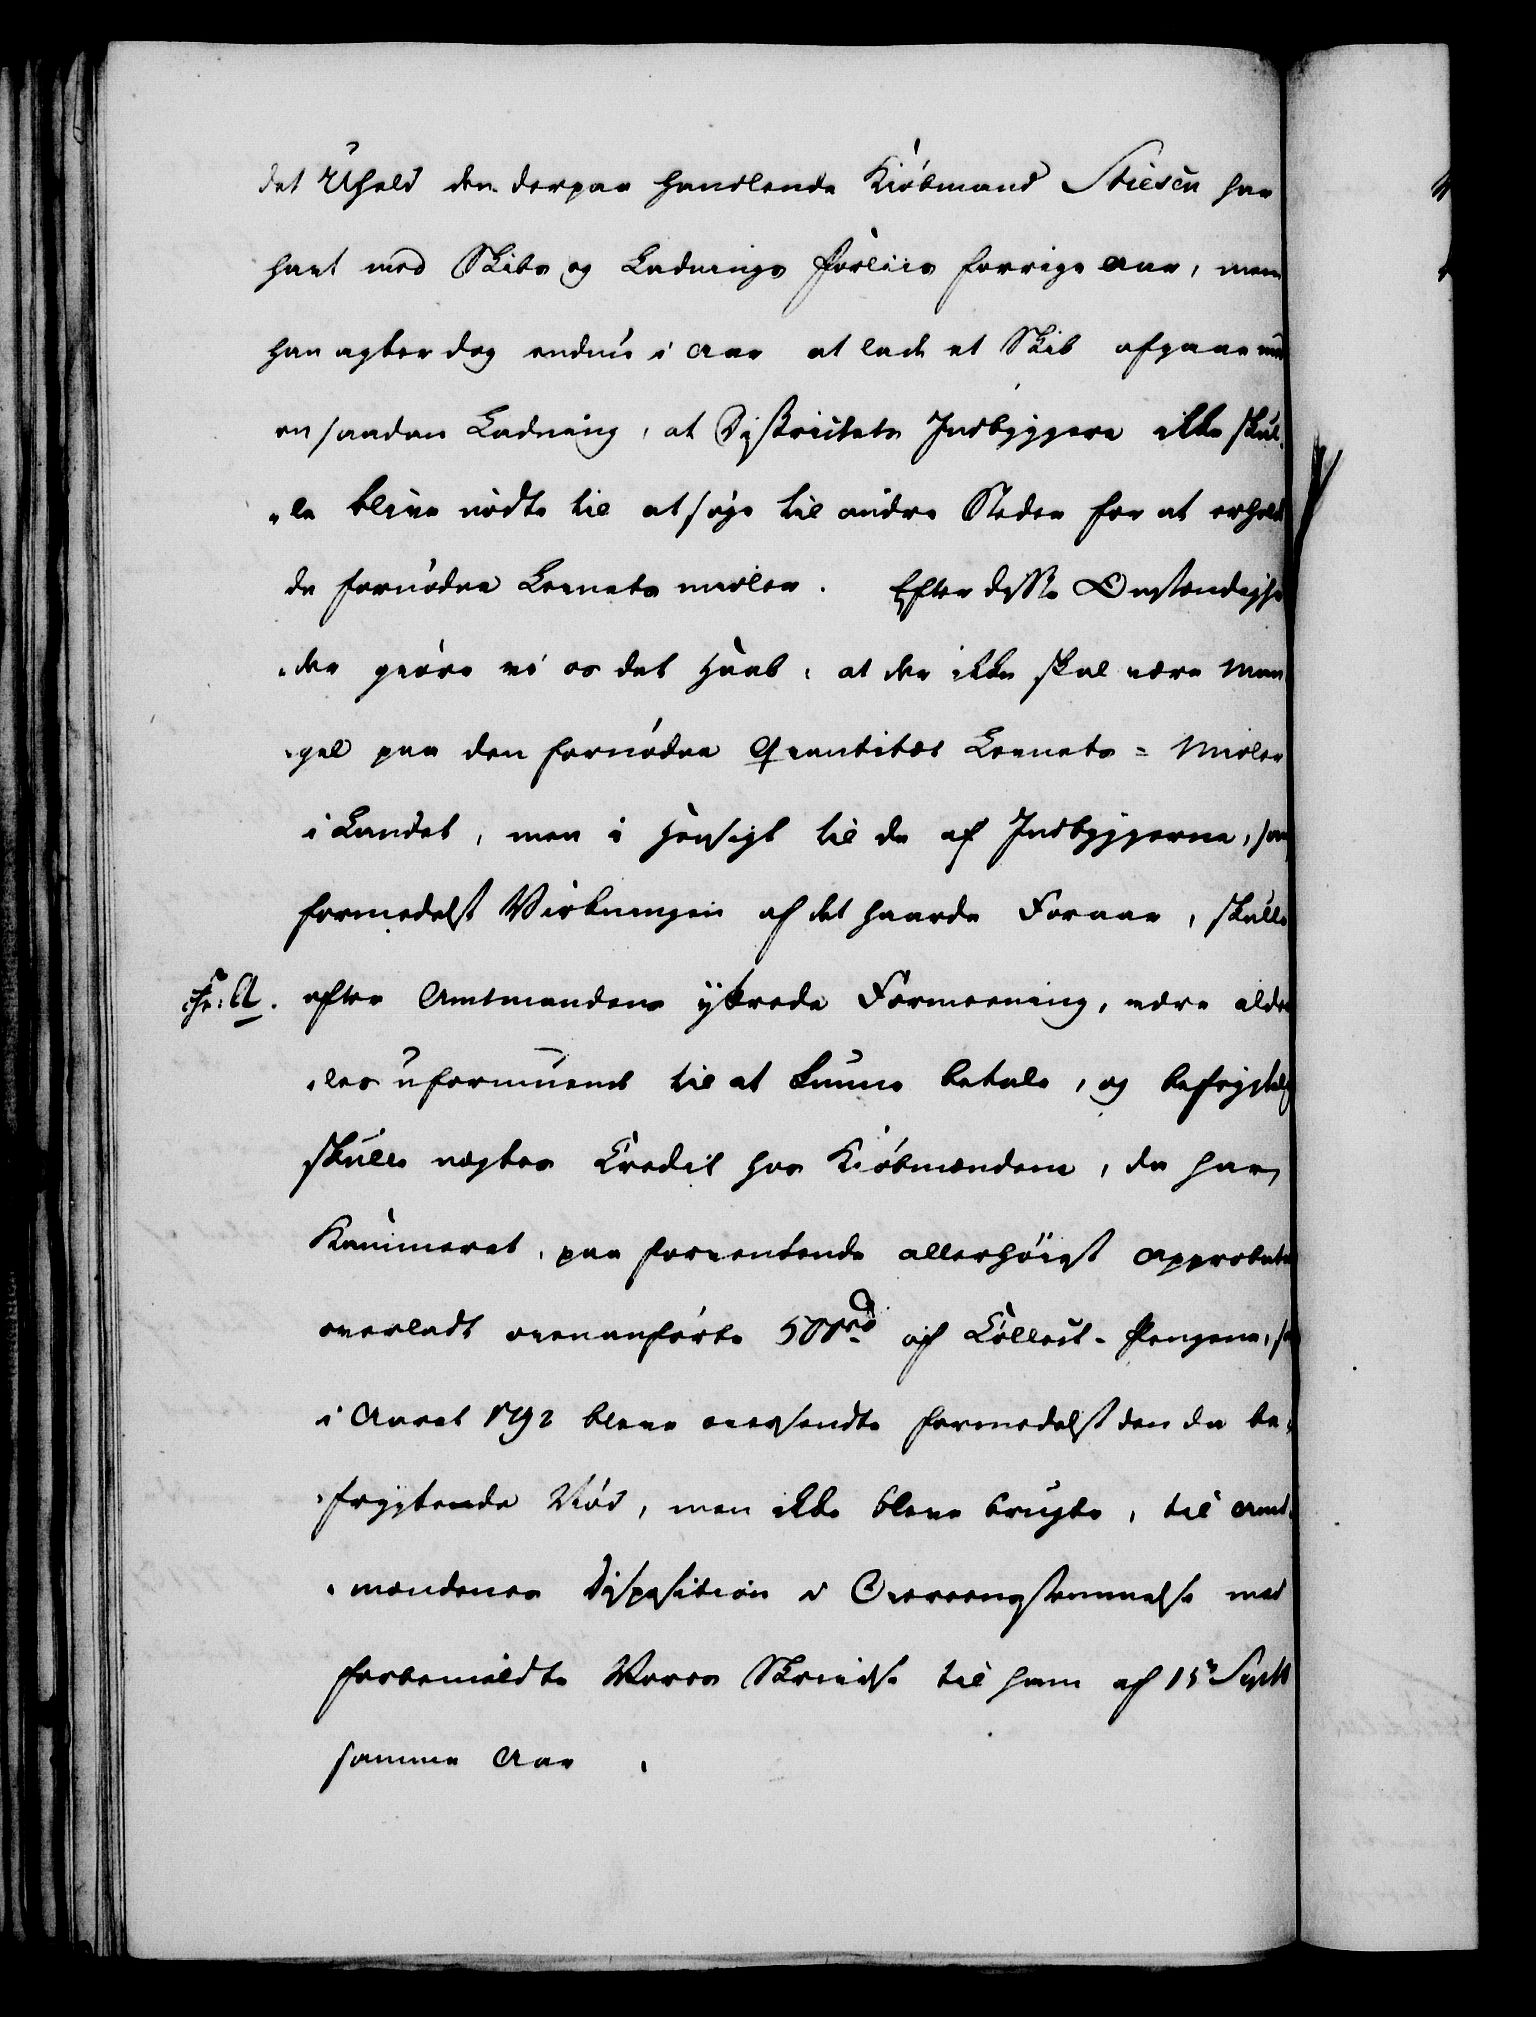 det Uheld den derpaa handlende Kiöbmand Stiesen har
havt med Skibs og Ladnings Forliis forrige Aar, men
han agter dog endnu i Aar at lade et Skib afgaae med
en saadan Ladning, at Districtets Indbyggere ikke skul-
„le blive nödte til at söge til andre Steder for at erholde
de fornödne Levnets midler. Efter disse Omstændighe
„der giöre vi os det Haab, at der ikke skal være Man
„gel paa den fornödne Qvantitet Levnets = Midler
i Landet, men i Hensigt til de af Indbyggerne, som
formedelst Virkningen af det haarde Foraar, skulle
efter Amtmandens yttrede Formeening, være alde
„les uformuend til at kunne betale, og befrygtelig
skulle nægtes Credit hos Kiöbmændene, da har
Kammeret, paa forventende allerhöiest Approbation
overladt ovenanförte 500 rd af Collect-Pengene, som
i Aaret 1792 bleve oversendte formedelst den da be-
„frygtende Nöd, men ikke bleve brugte, til Amt-
„mandens Disposition i Overeensstemmelse med
forbemeldte Vores Skrivelse til ham af 15de Septb
samme Aar.